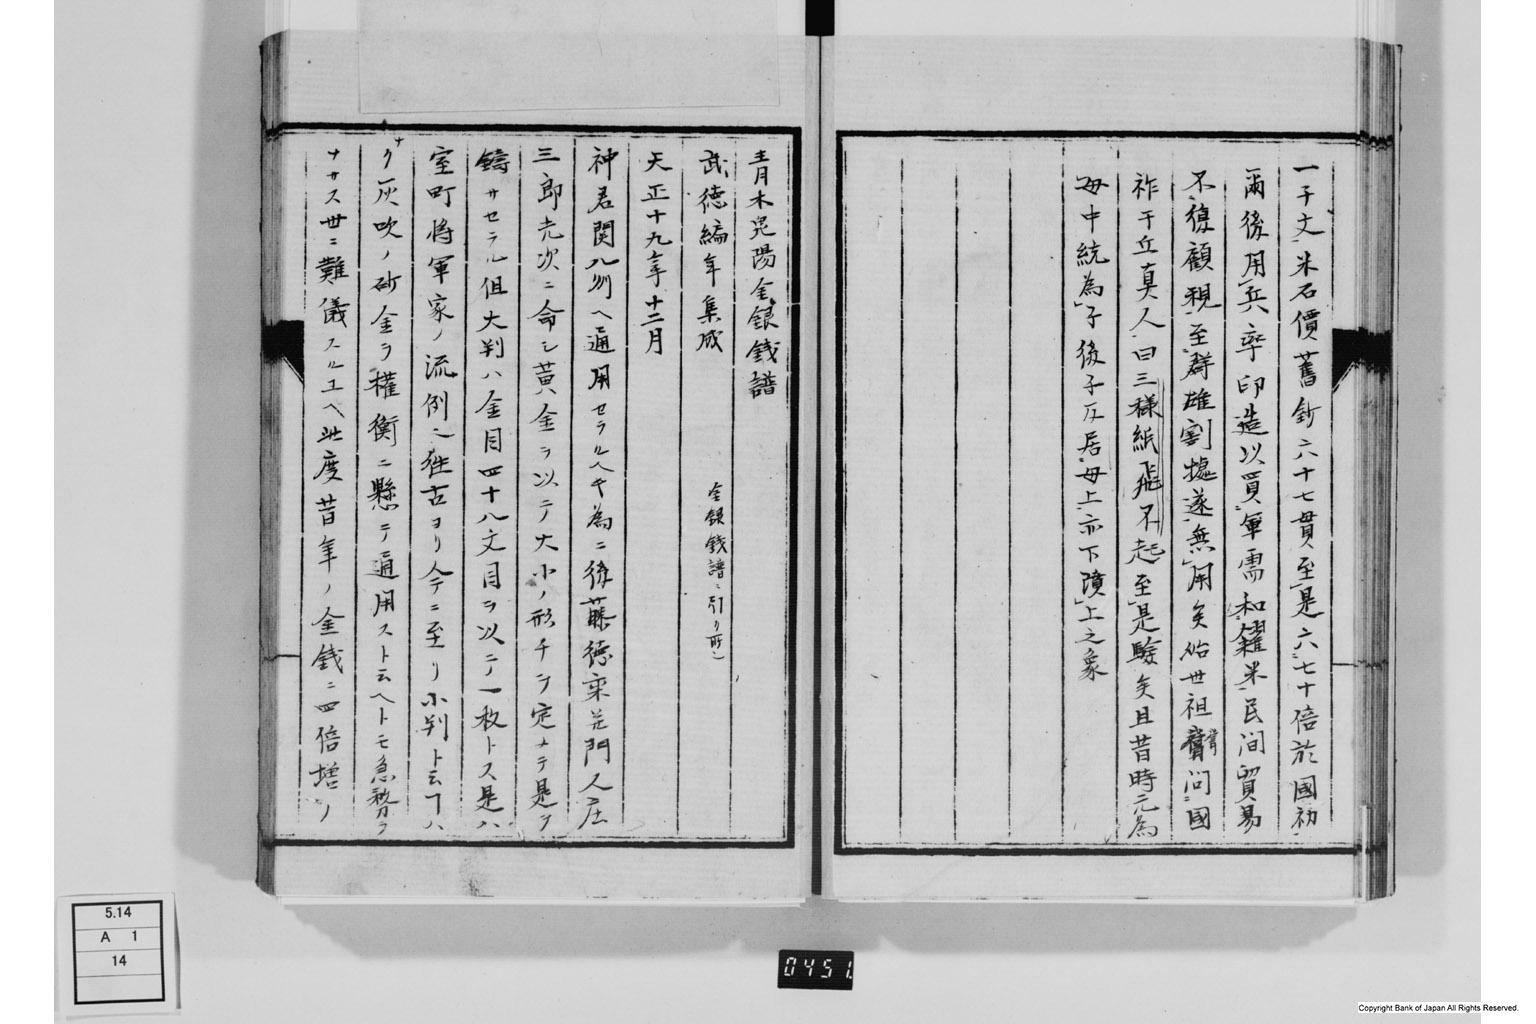 一千文米石價舊鈔六十七貫至是六七十倍於國初
爾後用兵率印造以買軍需和糴米民間貿易
不復顧視至群雄割據遂無用矣始世祖嘗問國
祚于丘真人曰三様紙飛不起至是驗矣且昔時元為
母中統為子後子反居母上亦下陵上之象
青木昆陽金銀銭譜
武徳編年集成 金銀銭譜ニ引ク所ニ
天正十九年十二月
神君関八州ヘ通用セラルヘキ為ニ後藤徳乗並門人庄
三郎光次ニ命シ黄金ヲ以テ大小ノ形チヲ定メテ是ヲ
鋳サセラル但大判ハ金目四十八文目ヲ以テ一枚トス是ハ
室町将軍家ノ流例ニ往古ヨリ今ニ至リ小判ト云ヿハ
ナク灰吹ノ砂金ヲ權衡ニ懸テ通用スト云ヘトモ急務ヲ
ナサス世ニ難儀スルユヘ此度昔年ノ金銭ニ四倍増ノ
5.14
A 1
14
0451
Copyright Bank of Japan All Rights Reserved.